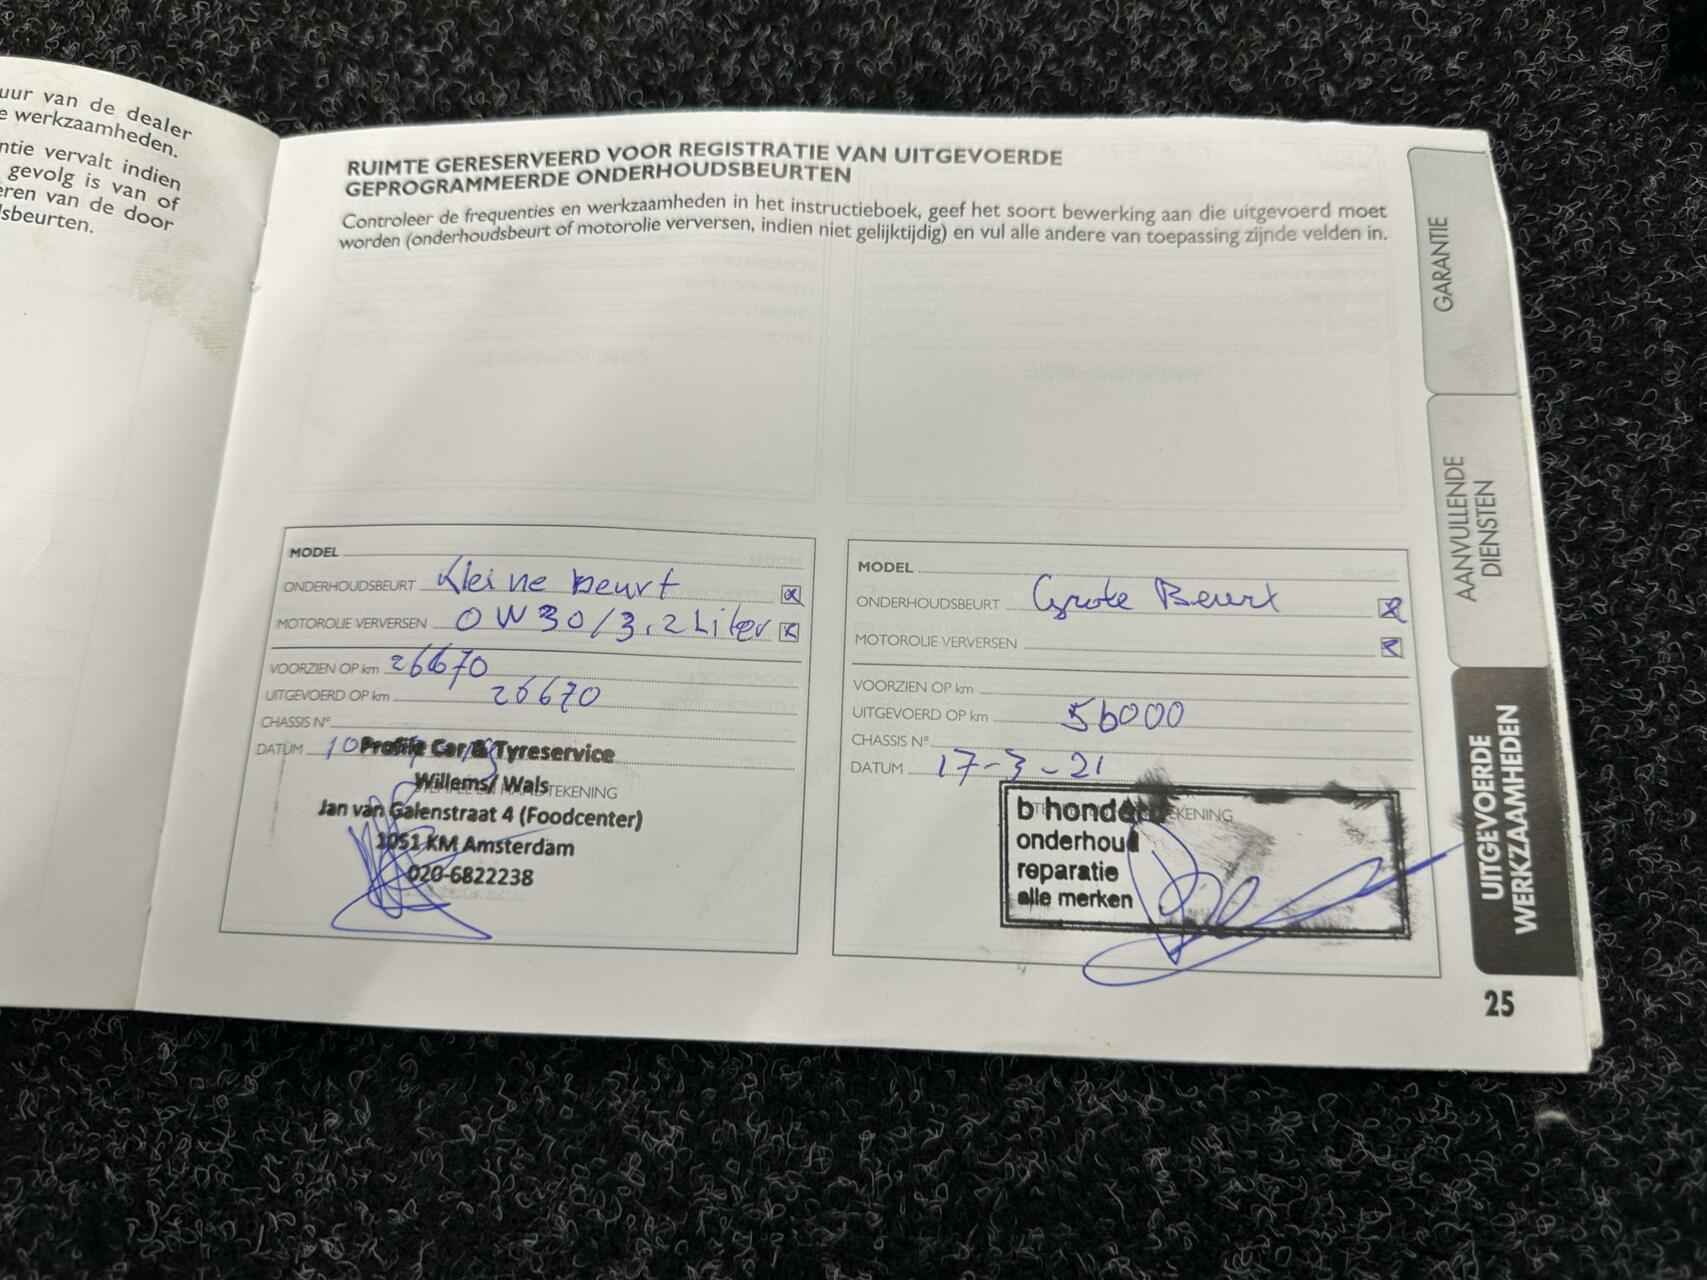 uur van de dealer
e werkzaamheden.
ntie vervalt indien
gevolg is van of
eren van de door
lsbeurten.
RUIMTE GERESERVEERD VOOR REGISTRATIE VAN UITGEVOERDE
GEPROGRAMMEERDE ONDERHOUDSBEURTEN
Controleer de frequenties en werkzaamheden in het instructieboek, geef het soort bewerking aan die uitgevoerd moet
worden (onderhoudsbeurt of motorolie verversen, indien niet gelijktijdig) en vul alle andere van toepassing zijnde velden in.
MODEL
ONDERHOUDSBEURT Kleine beurt
MOTOROLIE VERVERSEN 0W30/3.2 Liter
VOORZIEN OP km 26670
UITGEVOERD OP km 26670
CHASSIS N°
DATUM 10
Profile Car & Tyreservice
Willems/ Wals
TEKENING
Jan van Galenstraat 4 (Foodcenter)
1051 KM Amsterdam
020-6822238
MODEL
ONDERHOUDSBEURT Grote Beurt
MOTOROLIE VERVERSEN
VOORZIEN OP km
UITGEVOERD OP km 56000
CHASSIS N°
DATUM 17-3-21
b honderd
EKENING
onderhoud
reparatie
alle merken
GARANTIE
AANVULLENDE
DIENSTEN
UITGEVOERDE
WERKZAAMHEDEN
25